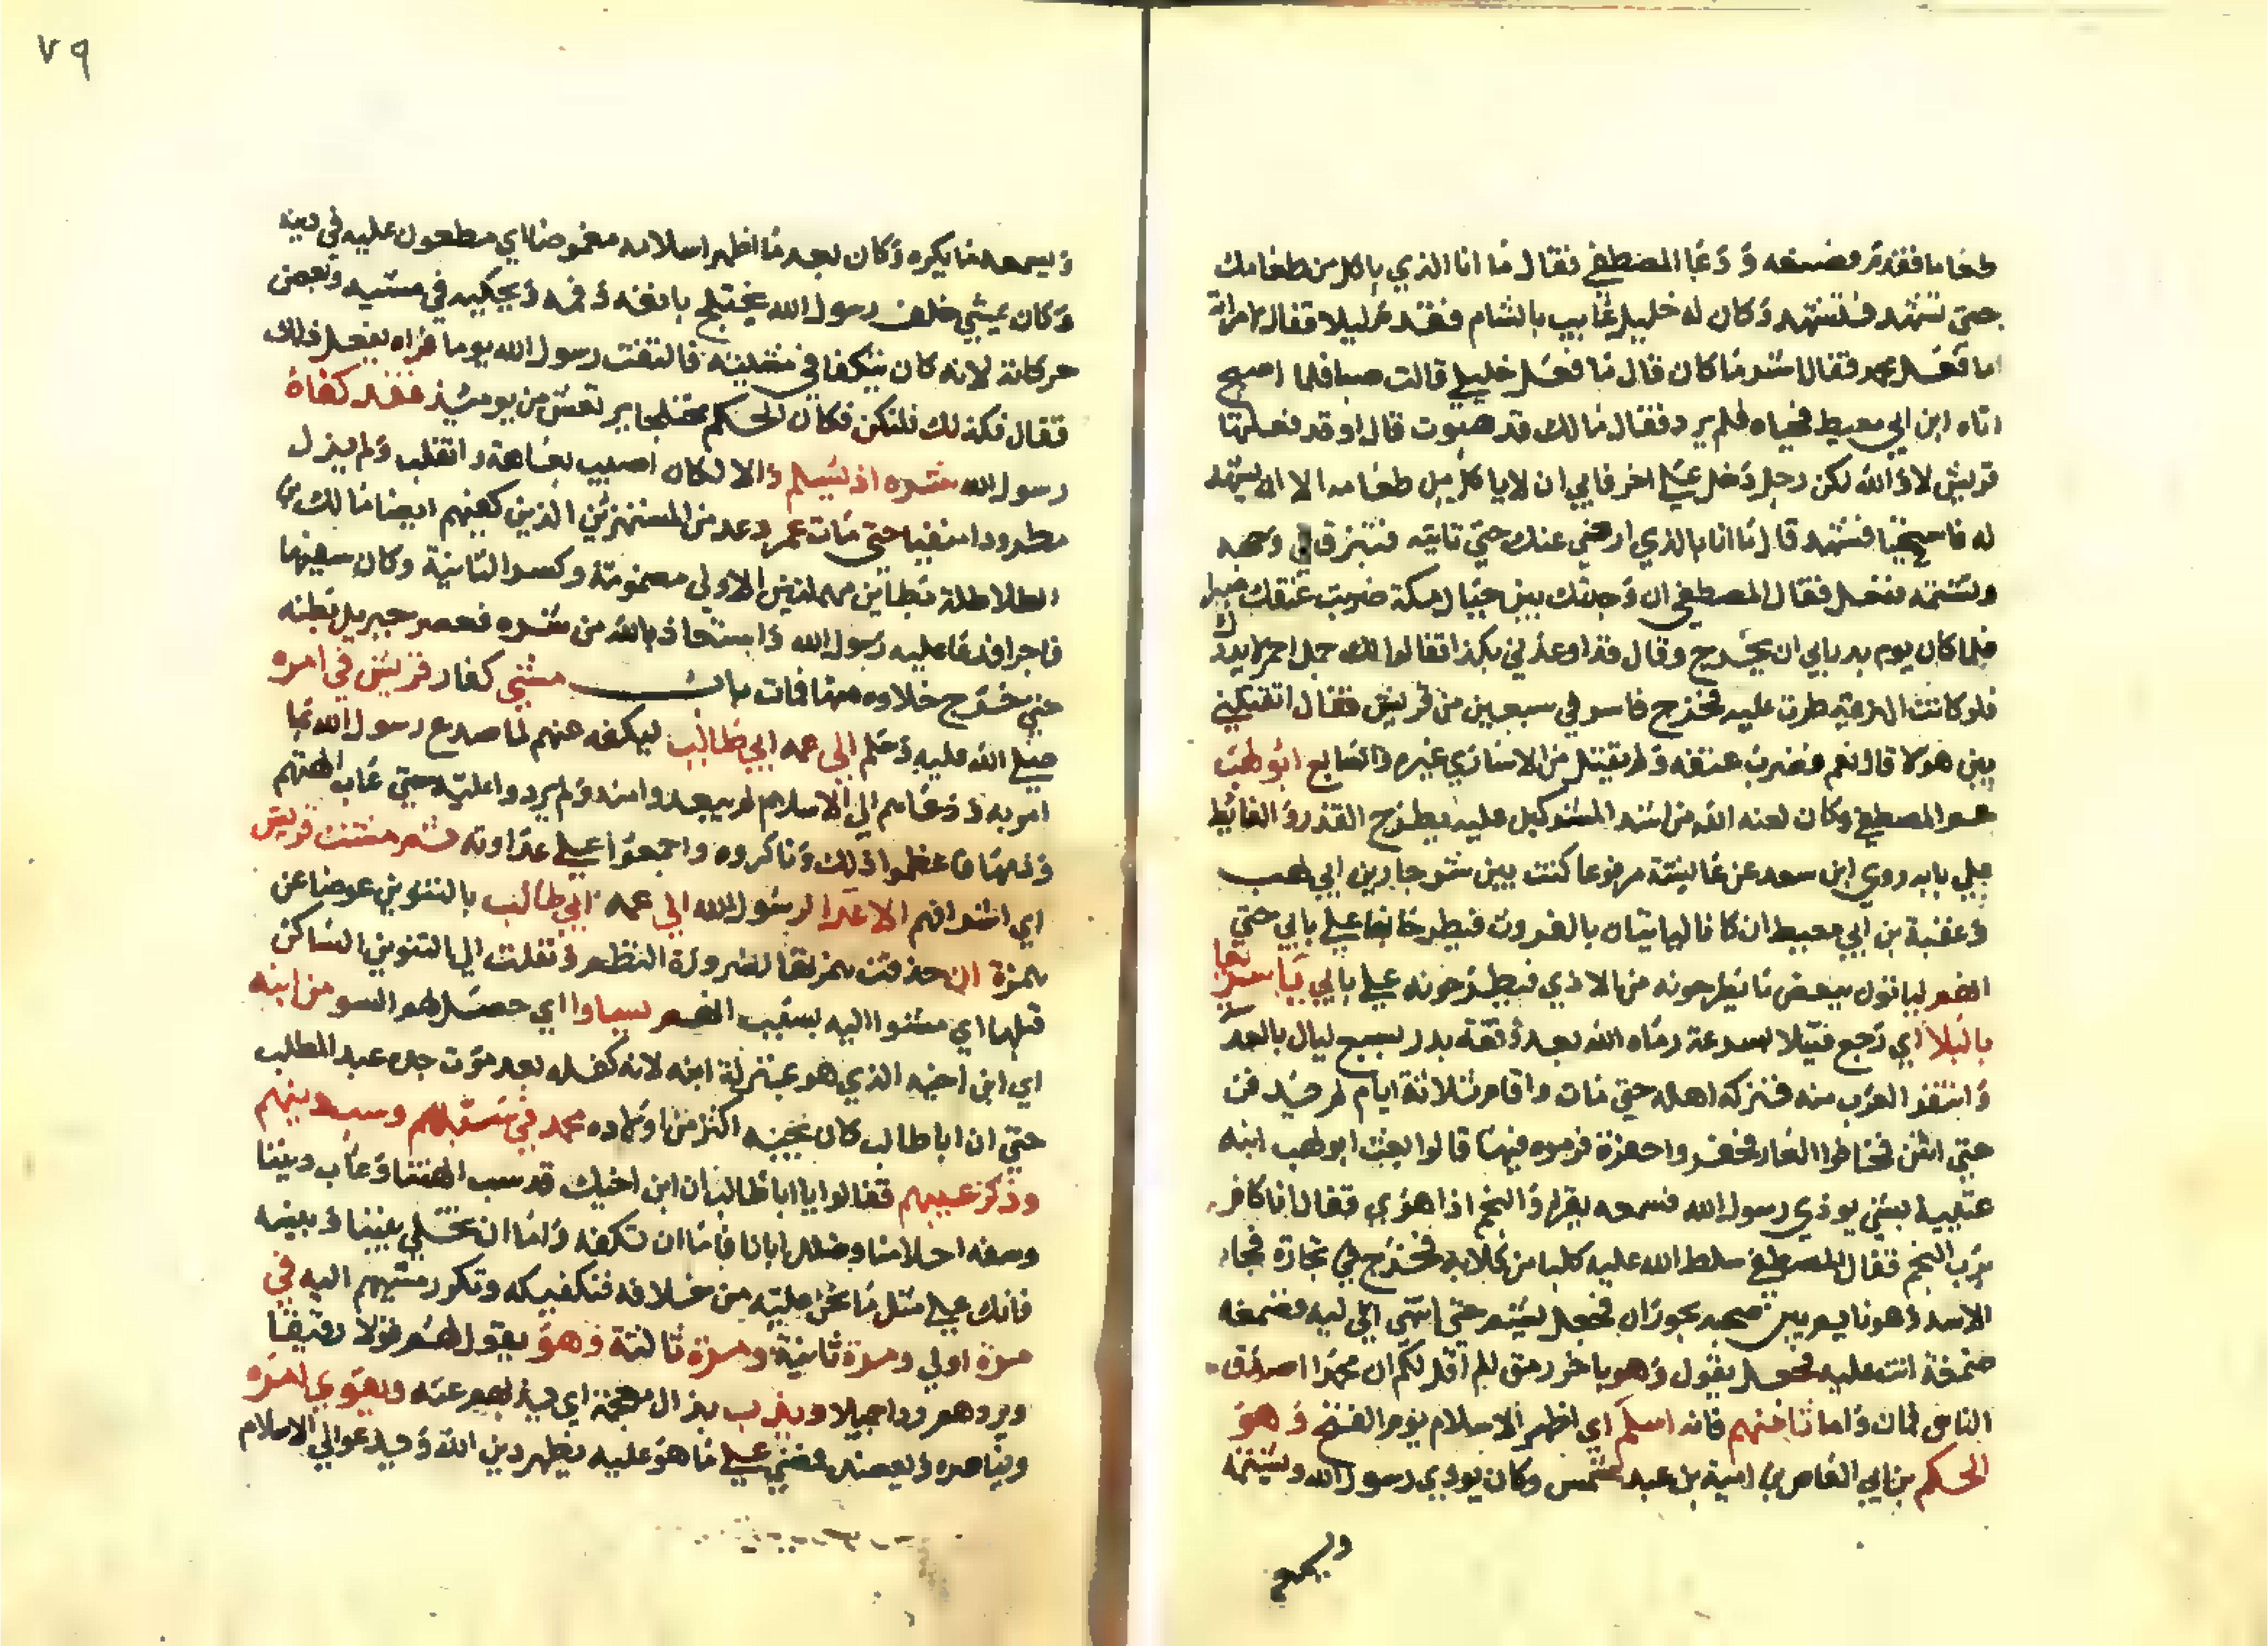 طعاما فقدم فصنعه ودعا المصطفى فقال ما انا الذي ياكل من طعامك
حتى تشهد فتشهد وكان له خليل غايب بالشام فقدم ليلا فقال لامراته
ما فعل محمد فقال اشد ما كان قال ما فعل خليلي قالت صبا فلما اصبح
اتاه ابن ابي معيط فحياه فلم يرد فقال مالك قد صبوت قال اوقد فعلتها
قريش لا والله لكن رجل دخل علي اخر فابي ان لا ياكل من طعامه الا ان يشهد
له فاستحيت فشهد قال ما انا بالذي ارضى عنك حتى تاتيه فتبزق في وجهه
وتشتمه ففعل فقال المصطفى ان وجدتك بين جبال مكة ضربت عنقك صبرا
فلما كان يوم بدر بابي ان يخرج وقال قد اوعدني بكذا فقالوا لك جمل احمر لا يدرك
فلو كانت الهزيمة طرت عليه فخرج فاسر في سبعين من قريش فقال اتقتلني
بين هولا قال نعم فضرب عنقه ولم يقتل من الاساري غيره والسابع ابو لهب
عم المصطفى وكان لعنه الله من اشد المشركين عليه يطرح القذر والغايط
على بابه روي ابن سعد عن عايشة مرفوعا كنت بين شر جارين ابي لهب
وعقبة بن ابي معيط ان كانا لياتيان بالفروث فيطرحانها على بابي حتى
انهم لياتون ببعض ما يطرحونه من الاذي فيطرحونه على بابي
بالبلا اي رجع قتيلا بسرعة رماه الله بعد وقعة بدر بسبع ليال بالعدسة
حتى انتن فخافوا العار فحفروا حفرة فرموه فيها قالوا بعث ابو لهب ابنه
عتيبة بشي يوذي رسول الله فسمعه يقرا والنجم اذا هوي فقال انا كافر
برب النجم فقال المصطفى سلط الله عليه كلبا من كلابه فخرج في تجارة فجاء
الاسد وهو نايم بين صحبه بحوران فجعل يشم حتى انتهى اليه فضغمه
ضغمة انت عليه فجعل يقول وهو باخر رمق الم اقل لكم ان محمدا اصدق
الناس فمات واما ثامنهم فانه اسلم اي اظهر الاسلام يوم الفتح وهو
الحكم بن ابي العاص بن امية بن عبد شمس وكان يوذي رسول الله ويشتمه
ويسمعه
٧٩
ويسمعه ما يكره وكان بعد ما اظهر اسلامه مغموصا اي مطعون عليه في دينه
وكان يمشي خلف رسول الله يختلج بانفه وفمه ويحكيه في مشيه وبعض
حركاته لانه كان يتكفا في مشيته فالتفت رسول الله يوما فراه يفعل ذلك
فقال فكذلك فلتكن فكان الحكم مختلجا يرتعش من يومئذ فقد كفاه
رسول الله شره اذ يسلم والا لكان اصيب بعاهة وانقلب ولم يزل
مطرودا منفيا حتى مات عمر وعد من المستهزئين الذين كفيهم ايضا مالك بن
الطلاطلة بطائين مهملتين الاولى مضمومة وكسر الثانية وكان سفيها
فاجرا فدعا عليه رسول الله واستعاذ بالله من شره فعصر جبريل بطنه
حتى خرج خلاوه منها فمات باب مشي كفار قريش في امره
صلى الله عليه وسلم الى عمه ابي طالب ليكفه عنهم لما صدع رسول الله بما
امر به ودعاهم الى الاسلام لم يبعدوا منه ولم يردوا عليه حتى عاب الهتهم
وذمها فاعظموا ذلك وناكروه واجمعوا على عداوته ثم مشت قريش
اي اشرافهم الاعدا لرسول الله الى عمه ابي طالب بالتنوين عوضا عن
همزة ان حذفت همزتها لضرورة النظم ونقلت الى التنوين الساكن
قبلها اي مشوا اليه بسبب انهم يساوا اي حصل لهم السو من ابنه
اي ابن اخيه الذي هو بمنزلة ابنه لانه كفله بعد موت جده عبد المطلب
حتى ان ابا طالب كان يحبه اكثر من اولاده محمد في سبهم وسب دينهم
وذكر عيبهم فقالوا يا ابا طالب ان ابن اخيك قد سب الهتنا وعاب ديننا
وسفه احلامنا وضلل ابانا فاما ان تكفه واما ان تخلي بيننا وبينه
فانك على مثل ما نحن عليه من خلافه فنكفيكه وتكرر مشيهم اليه في
مرة اولي ومرة ثانية ومرة ثالثة وهو يقول لهم قولا رفيقا
ويردهم ردا جميلا ويذب بذال معجمة اي يدفعهم عنه ويقوي امره
ويناصره ويعضده فمضى على ما هو عليه يظهر دين الله ويدعو الى الاسلام